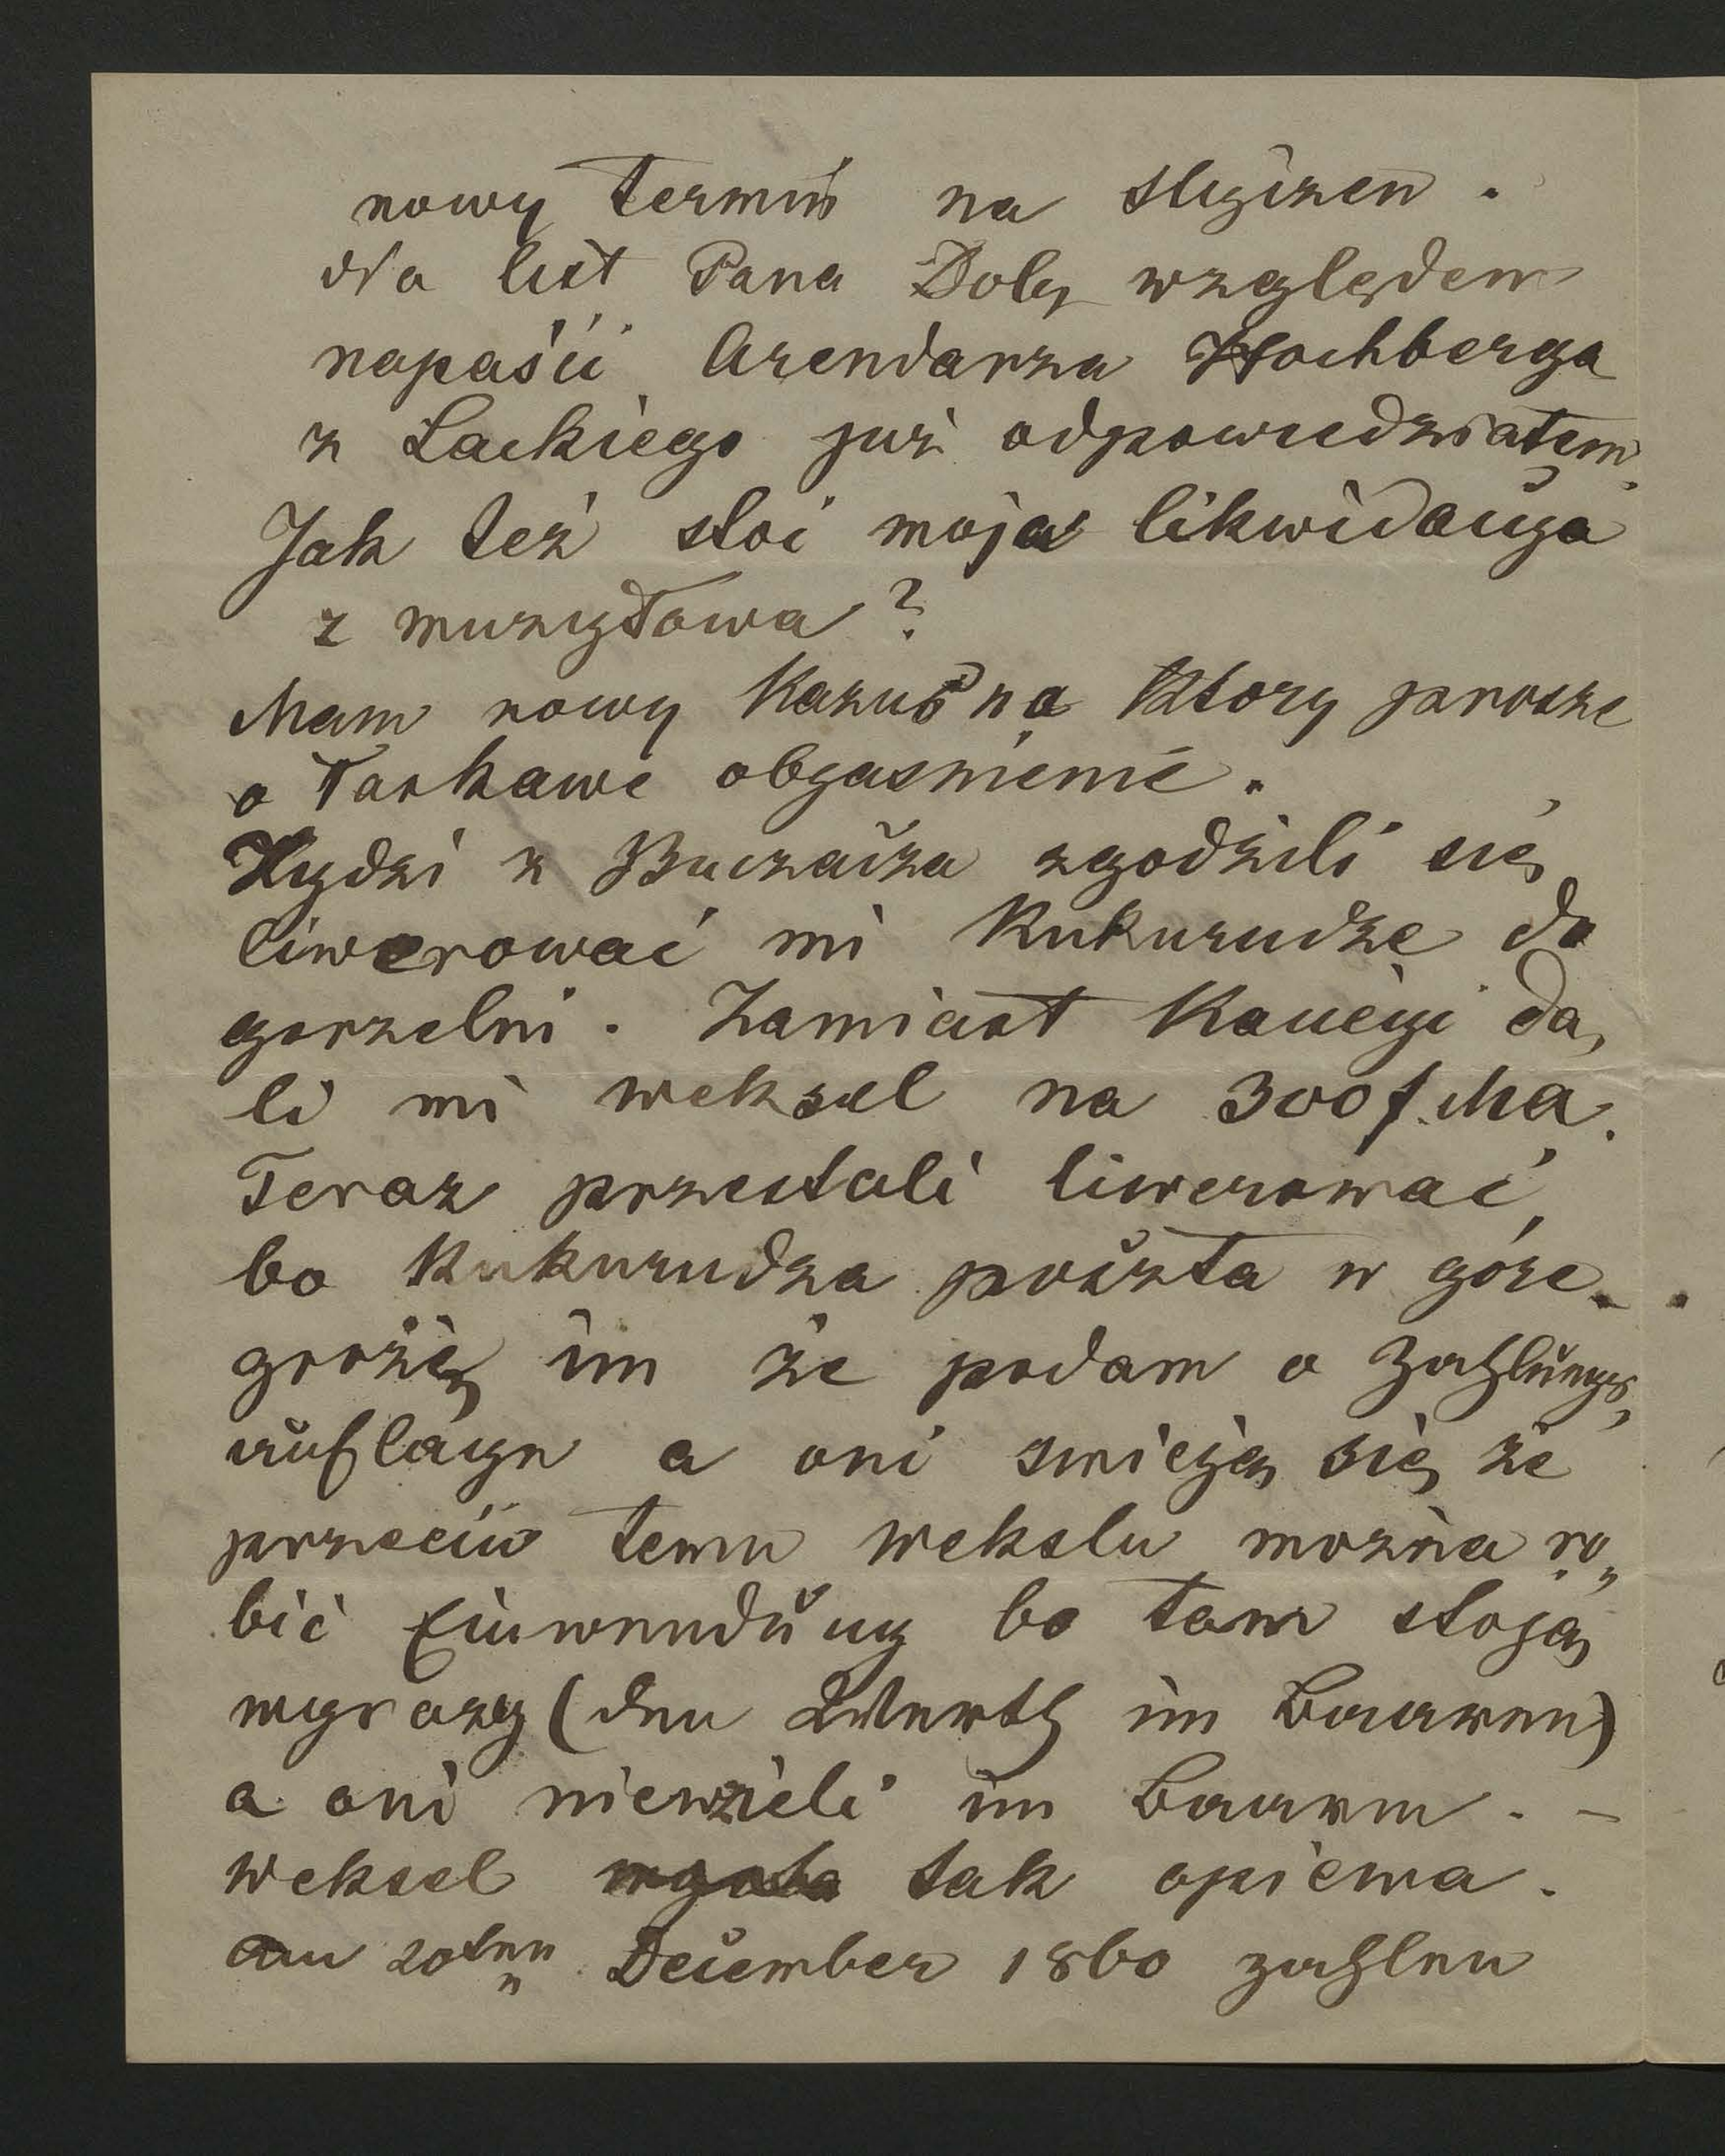 nowy termin na styczeń.
Na list Pana Doby względem
napaści Arendarza Hochberga
z Lackiego już odpowiedziałem.
Jak też stoi moja likwidacyja
z muzyłowa?
Mam nowy Kazus na Ktory prosze
o łaskawe objasnienie.
Żydzi z Buczacza zgodzili się
liwerować mi Kukurudze do
gorzelni. Zamiast Kaucyi da,
li mi weksel na 300 f. Ma.
Teraz przestali liwerować,
bo Kukurudza poszła w góre.
grożę im że podam o Zahlungs,
auflage a oni smieją się że
przeciw temu wekslu można ro„
bić Einwendung bo tam stoją
wyrazy (den Werth im Baaren)
a oni niewzieli im Baaren. –
weksel tak opiewa.
am 20ten December 1860 zahlen